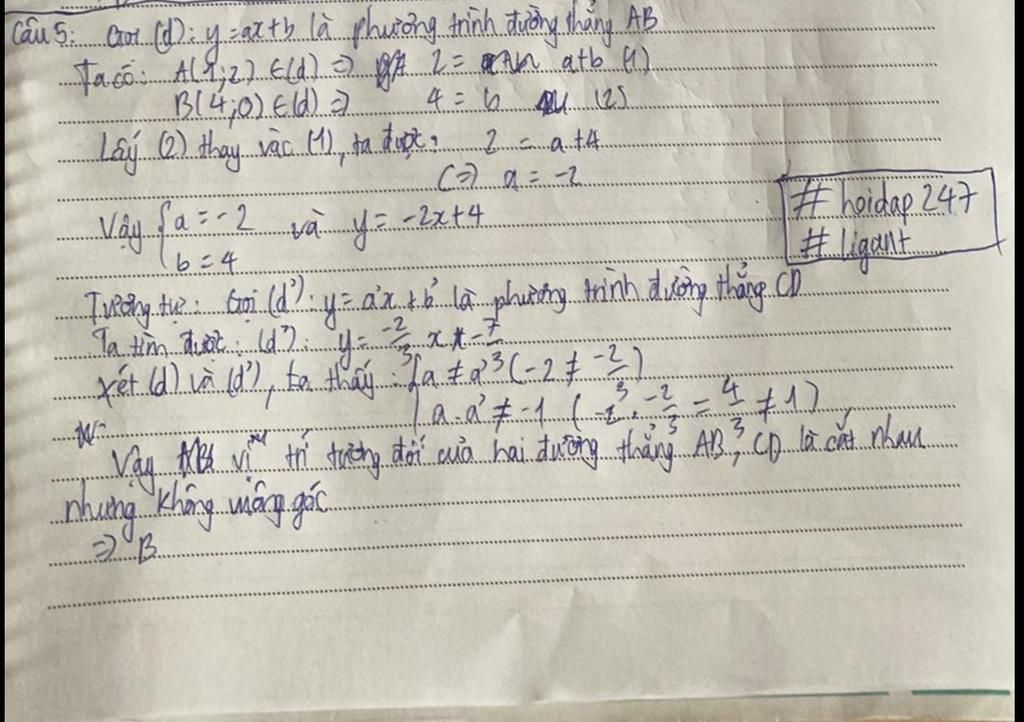 Câu 5: Gọi (d): y = ax+b là phương trình đường thẳng AB
Ta có: A(1;2) ∈(d) => 2 = a+b (1)
B(4;0) ∈(d) => 4 = b (2)
Lấy (2) thay vào (1), ta được: 2 = a+4
(=) a = -2
Vậy {a = -2 và y = -2x+4
b = 4
# hoidap 247
# ligant
Tương tự: Gọi (d'): y = a'x + b' là phương trình đường thẳng CD
Ta tìm được: (d'): y = -2/3 x - 7/3
Xét (d) và (d'), ta thấy: {a ≠ a' (-2 ≠ -2/3)
a.a' ≠ -1 (-2. -2/3 = 4/3 ≠ 1)
Vậy vị trí tương đối của hai đường thẳng AB, CD là cắt nhau
nhưng không vuông góc
=> B